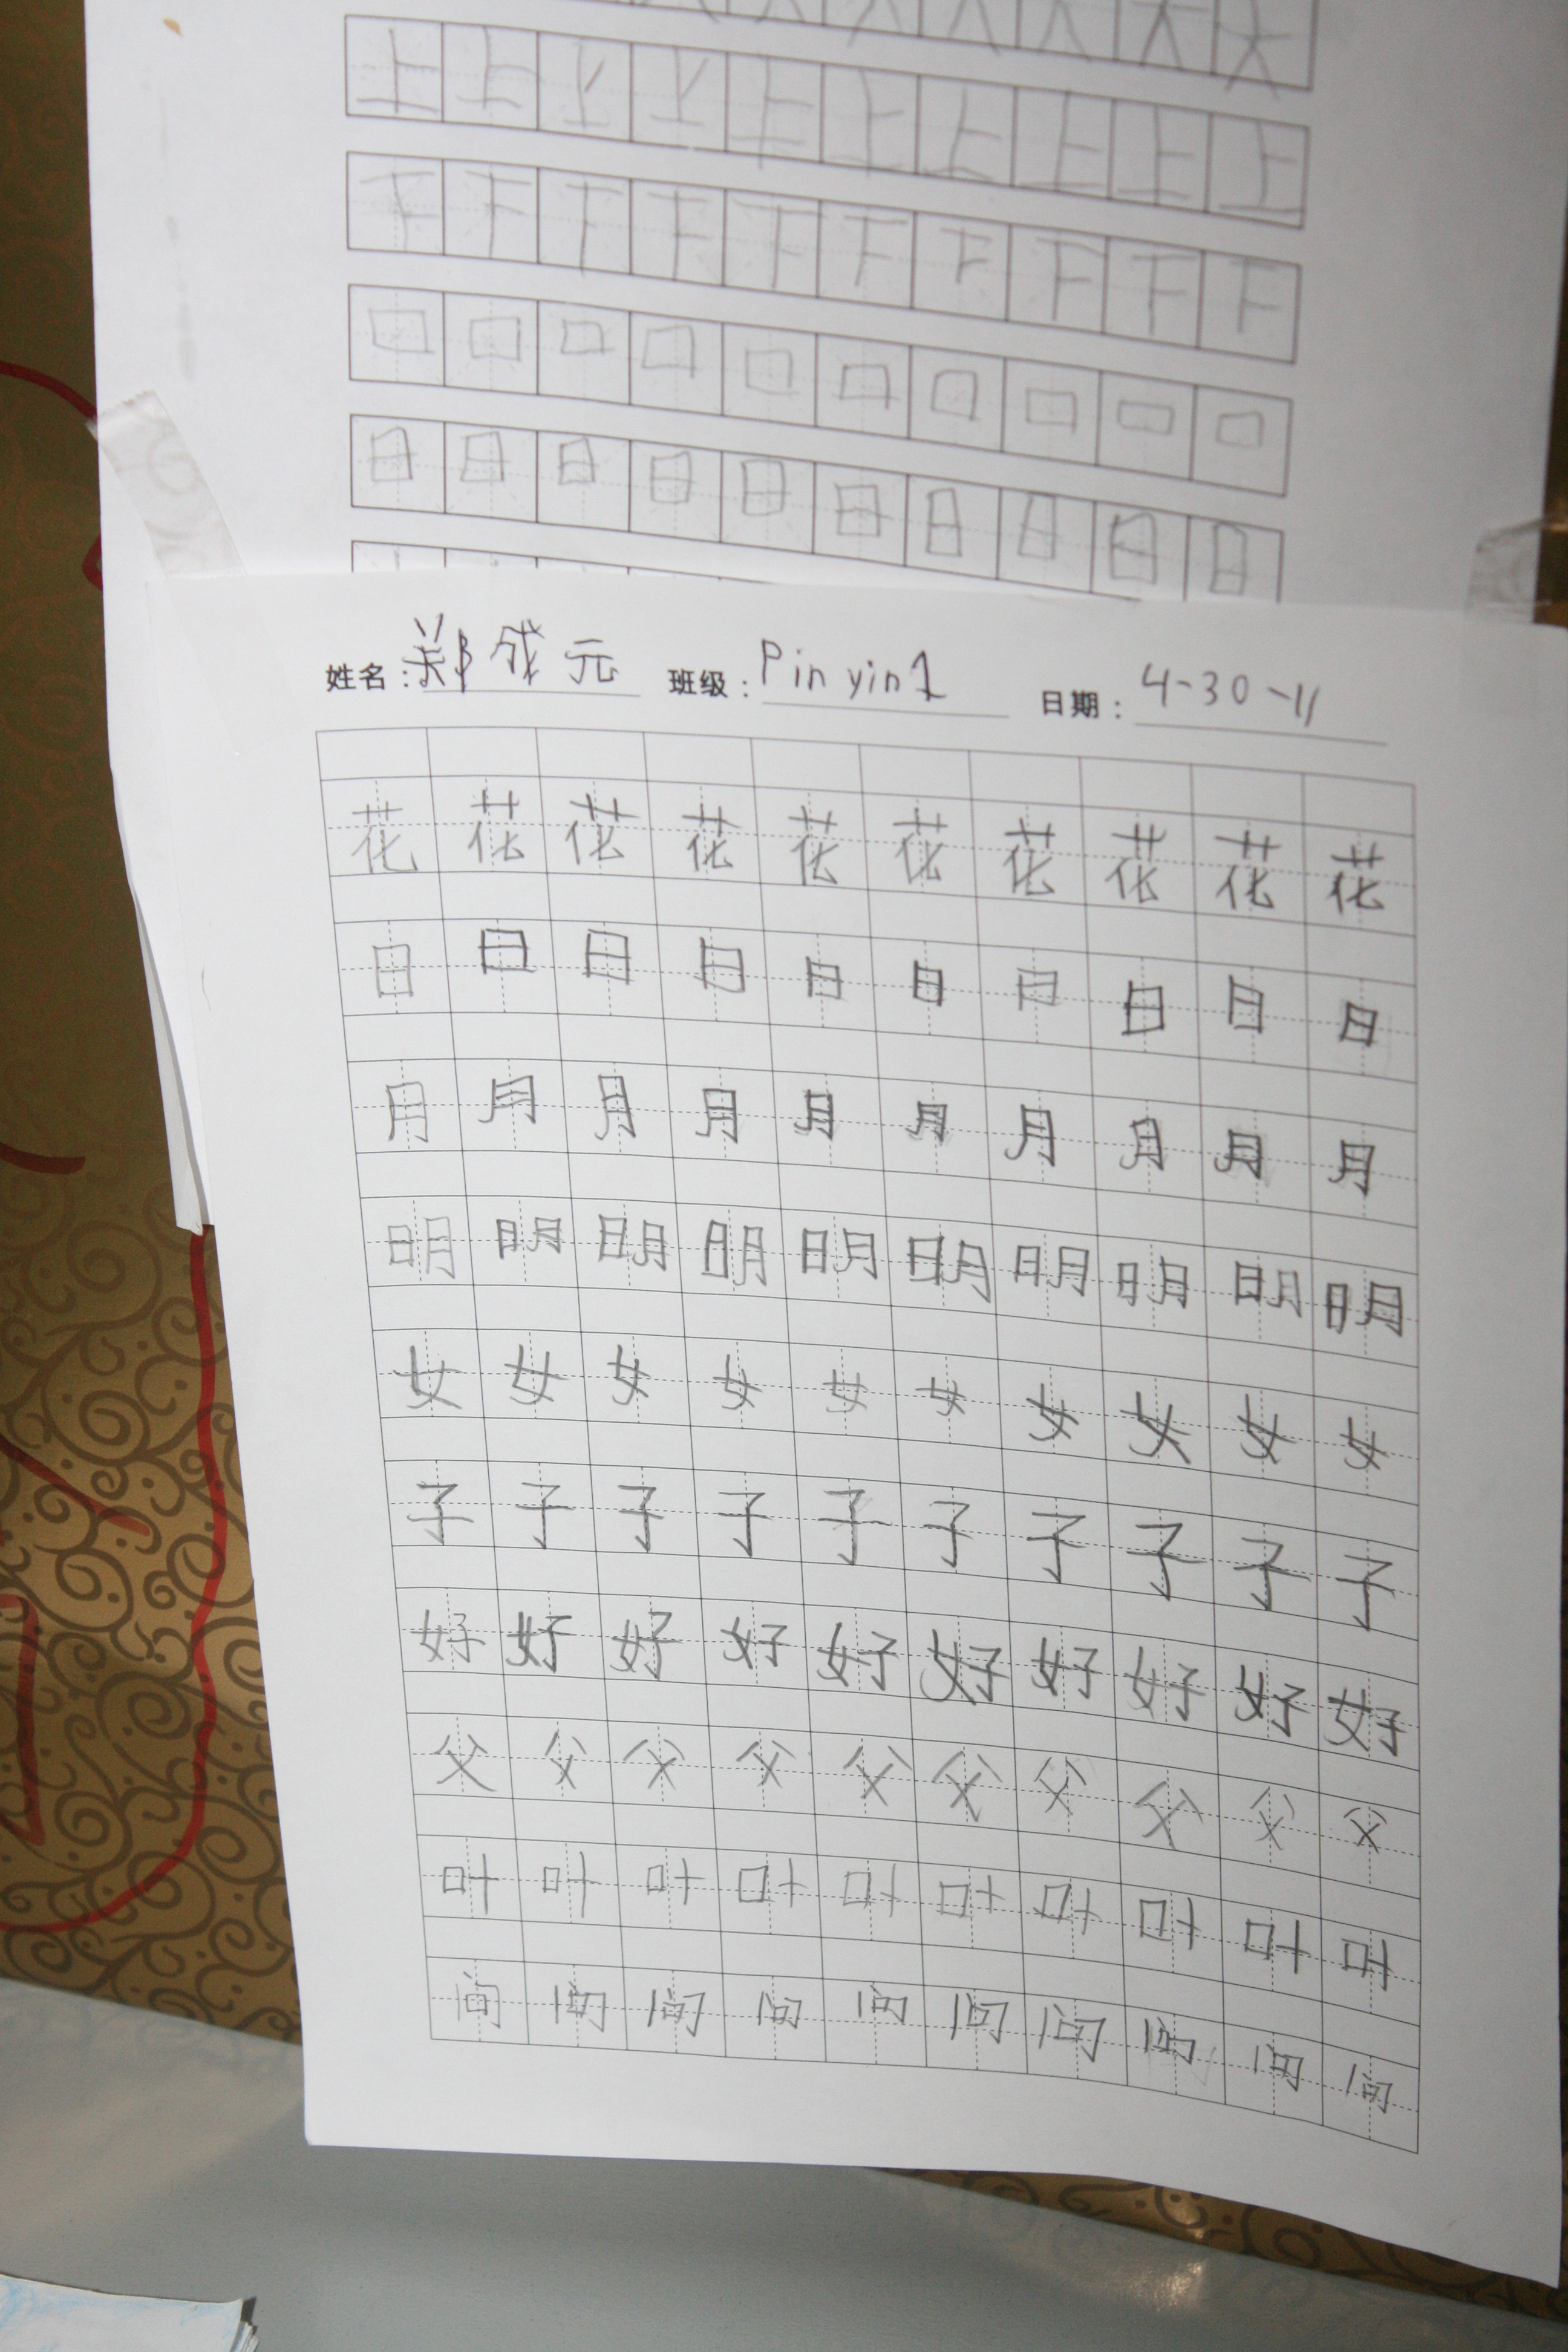 大 大
上 上 上 上 上 上 上 上 上 上
下 下 下 下 下 下 下 下 下 下
口 口 口 口 口 口 口 口 口 口
日 日 日 日 日 日 日 日 日 日
姓名：郑成元 班级：Pinyin1 日期：4-30-11
花 花 花 花 花 花 花 花 花 花
日 日 日 日 日 日 日 日 日 日
月 月 月 月 月 月 月 月 月 月
明 明 明 明 明 明 明 明 明 明
女 女 女 女 女 女 女 女 女 女
子 子 子 子 子 子 子 子 子 子
好 好 好 好 好 好 好 好 好 好
父 父 父 父 父 父 父 父 父 父
叶 叶 叶 叶 叶 叶 叶 叶 叶 叶
问 问 问 问 问 问 问 问 问 问